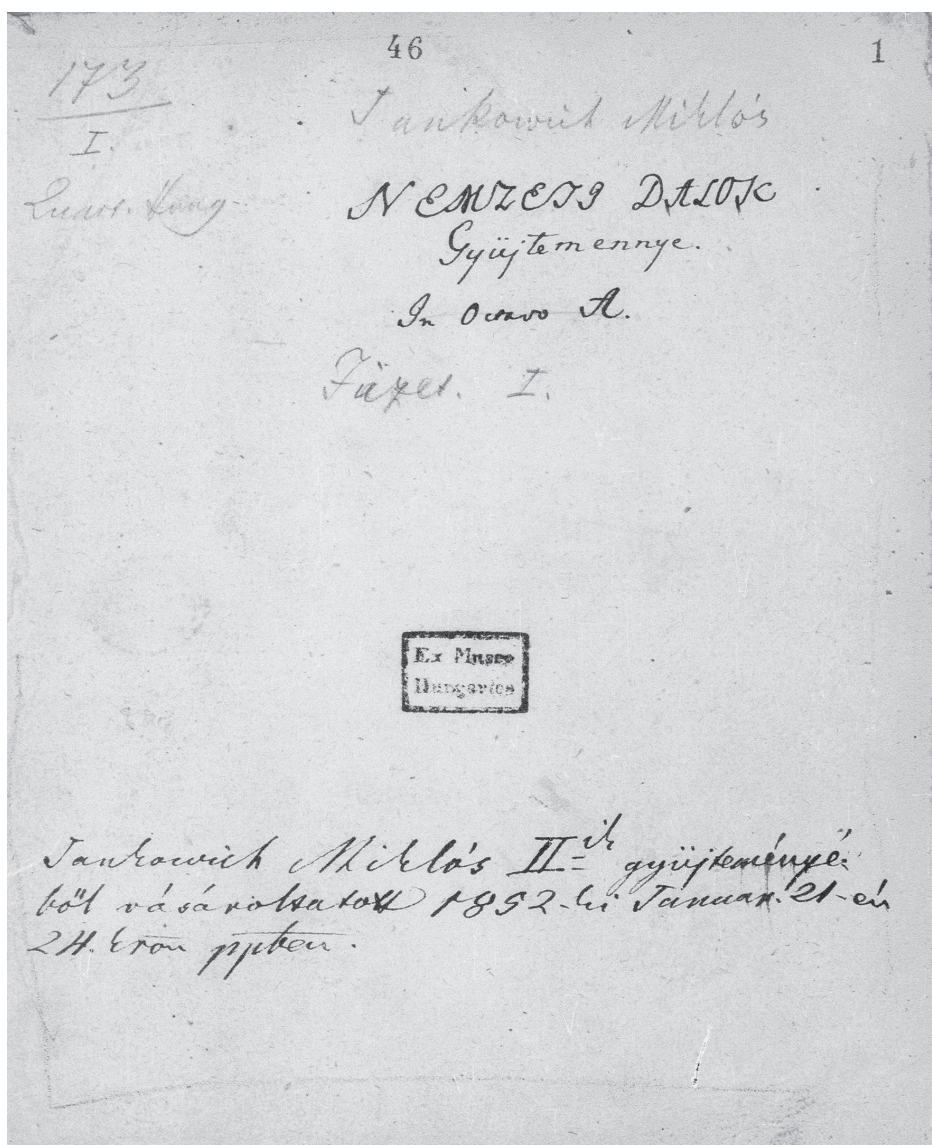 46
1
173
I.
Jankowich Miklós
Quart. Hung
NEMZETI DALOK
Gyüjtemennye.
In Octavo A.
Füzet. I.
Ex Museo
Hungarico
Jankowich Miklós II=ik gyüjteményé:
ből vásároltatott 1852-ki Januar. 21-én
24. kron ppben.